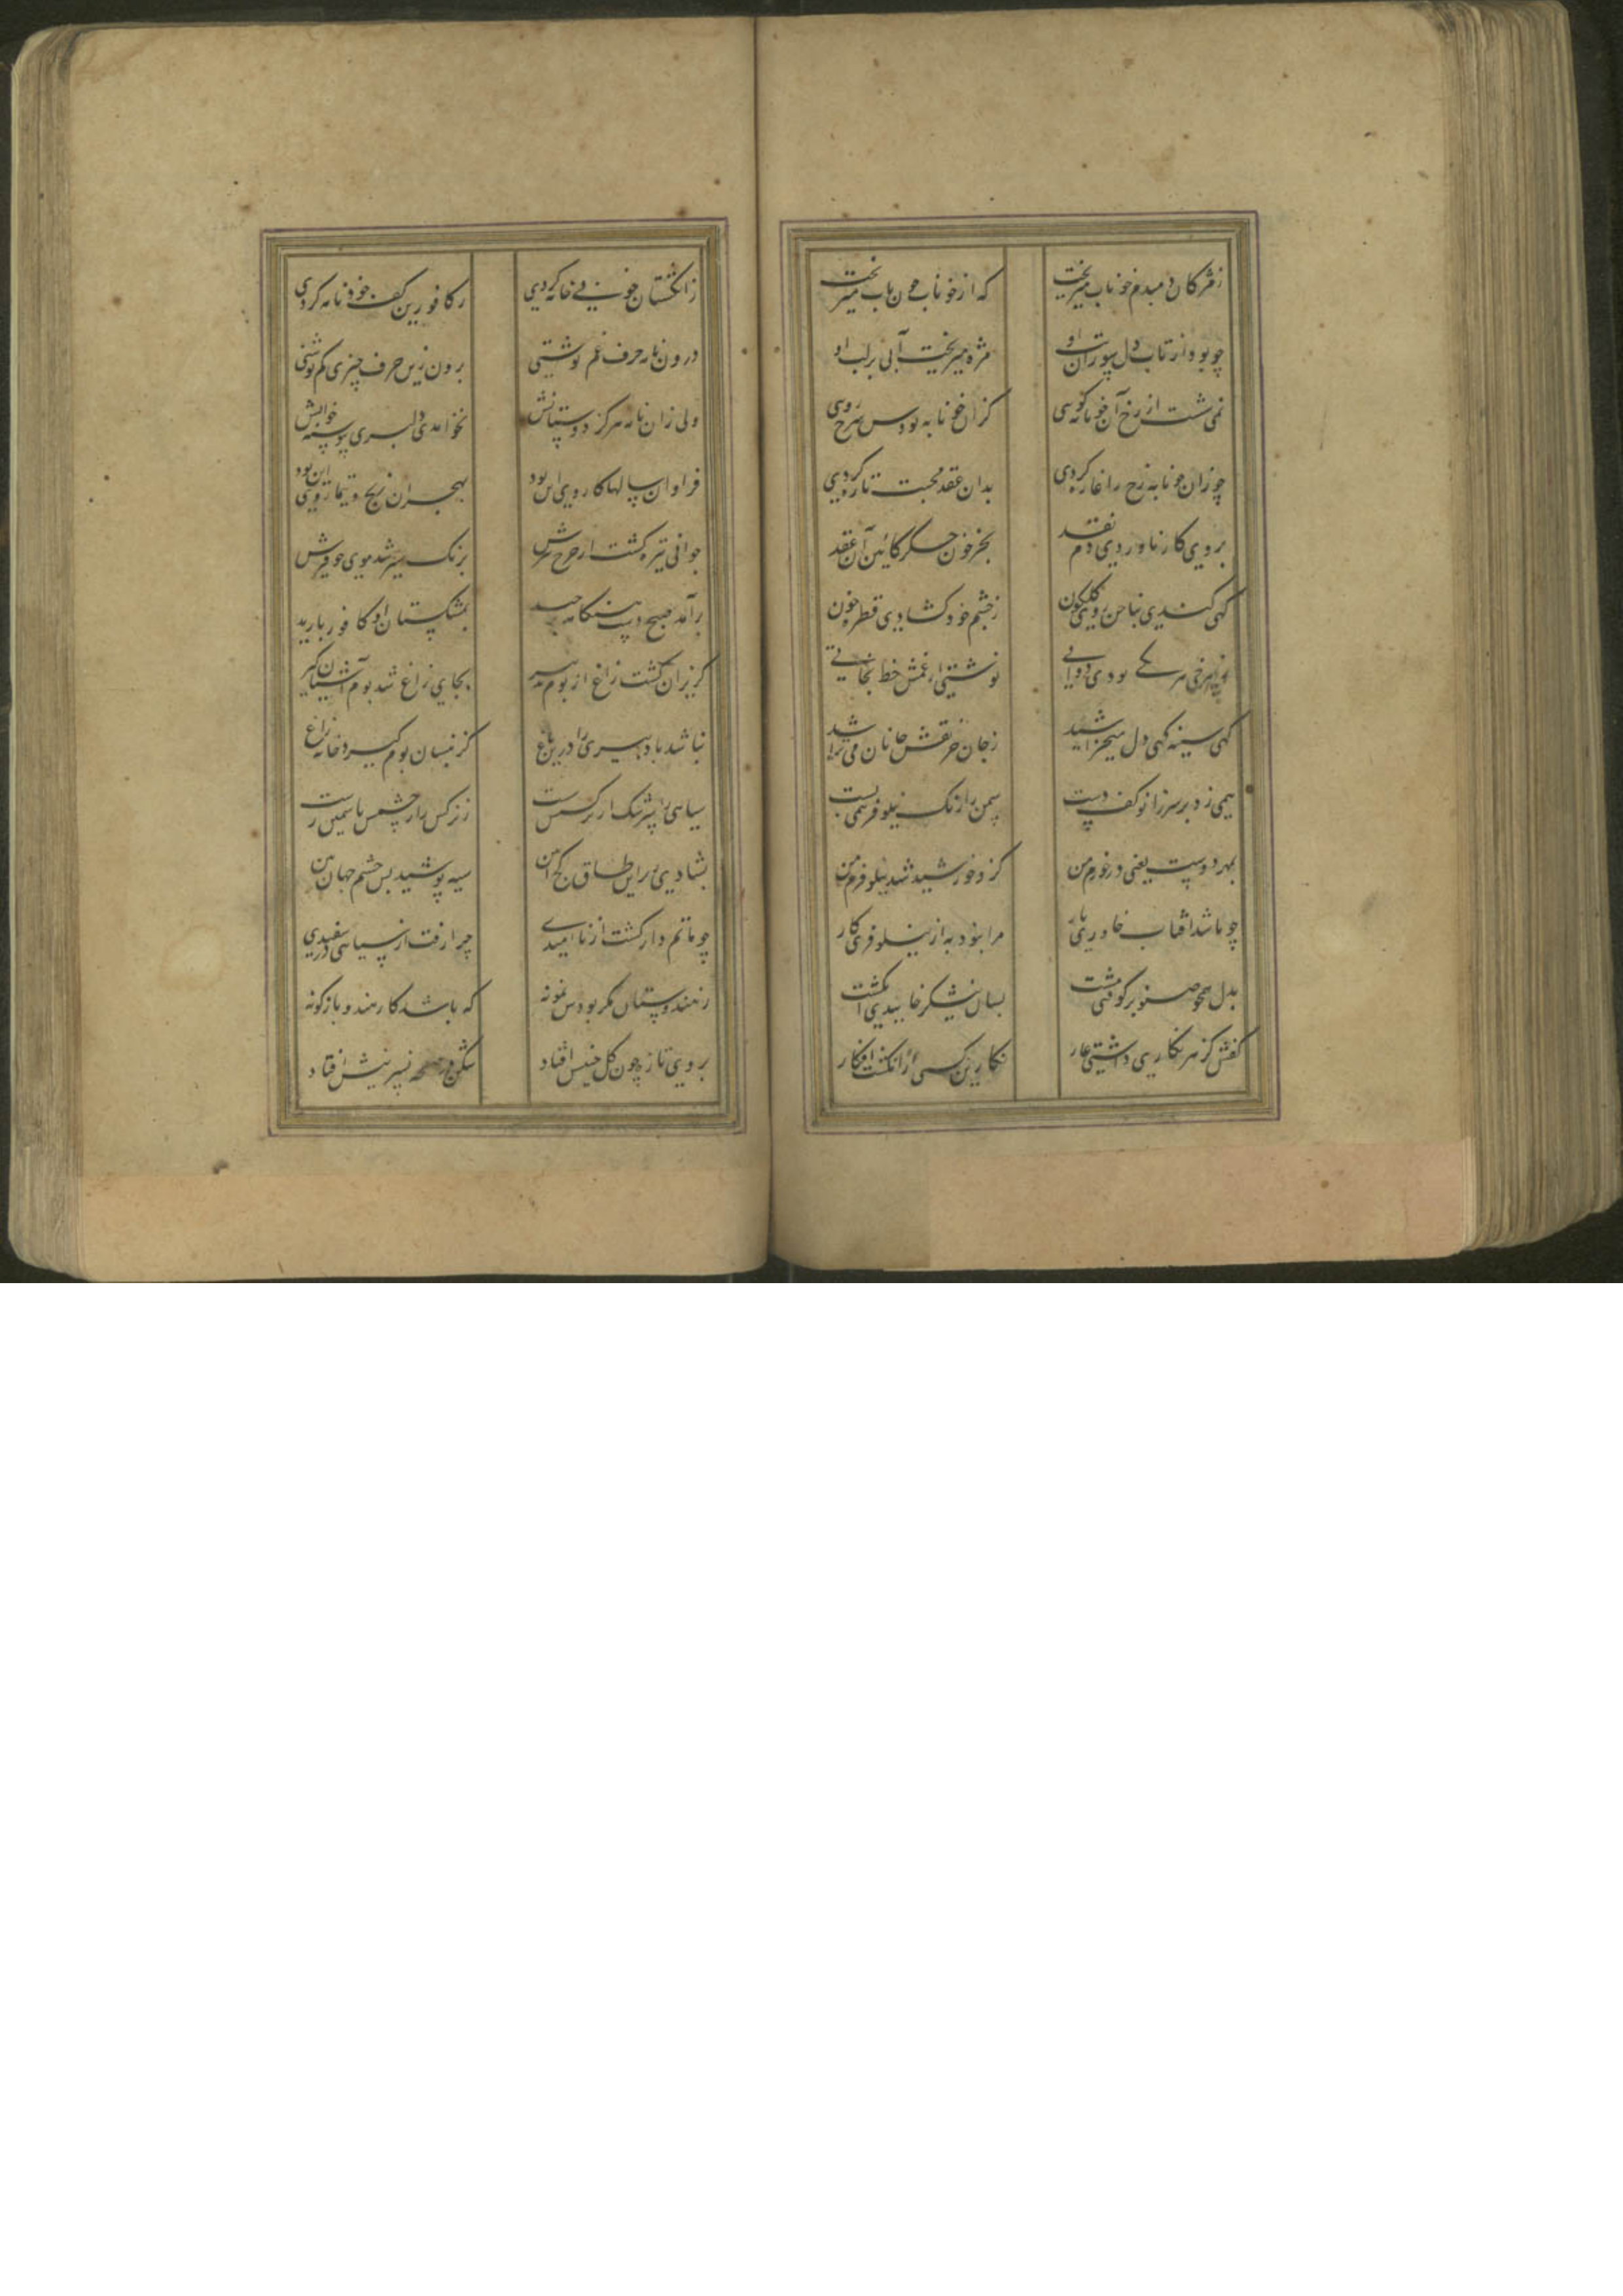 ز مژکان دمبدم خوناب میریخت که از خوناب خون ناب میریخت
چو بود از تاب دل سوزان تب او مژه میریخت آبی بر لب او
نمی شست از رخ آن خونابه کویی کزان خونابه بودش سرخ رویی
چو زان خونابه رخ را غازه کردی بدان عقد محبت تازه کردی
بروی کار ناوردی دم نقد بجز خون جکر کابین آن عقد
کهی کندی بناخن روی کلکون ز چشم خود کشادی قطره خون
نوشتی از غمش خط نجاتی
کهی سینه کهی دل میخراشید ز جان جز نقش جانان می تراشید
همی زد بر سر زانو کف دست سمن را رنک نیلوفر همی بست
بمهر دوست یعنی در خورم من کزو خورشید شد نیلوفرم من
چو باشد آفتاب خاوری یار مرا نبود به از نیلوفری کار
بدل همچو صنوبر کوفتی مشت بسان نیشکر خاییدی انکشت
کفش کز هر نکاری داشتی عار نکارین کسی از انکشت افکار
ز انکشتان خونین خامه کردی ز کافورین کف خود نامه کردی
درون نامه حرف غم نوشتی برون زین حرف چیزی کم نوشتی
ولی زان نامه هرکز دوستانش نخواندی دلبری پیوسته خوانش
فراوان سالها کار وی این بود بهجران رنج و تیمار وی این بود
جوانی تیره کشت از چرخ پیرش برنک شیر شد موی چو قیرش
برآمد صبح و شب هنکامه برچید بمشکستان او کافور بارید
کریزان کشت زاغ از بوم تدبیر بجای زاغ شد بوم آشیان کیر
نباشد یاد پیری را درین باغ کزینسان بوم کیرد خانه زاغ
سیاهی سرشک از نرکسش شست ز نرکس زار چشمش یاسمین رست
بشادی زیر این طاق کج آیین سیه پوشید بس چشم جهان بین
چو ماتم دار کشت از ناامیدی چرا رفت از سیاهی در سفیدی
ز هندوستان مکر بودش نمونه که باشد کار هندو باژکونه
بروی تازه چون کل چینش افتاد شکن در صفحه نسرینش افتاد